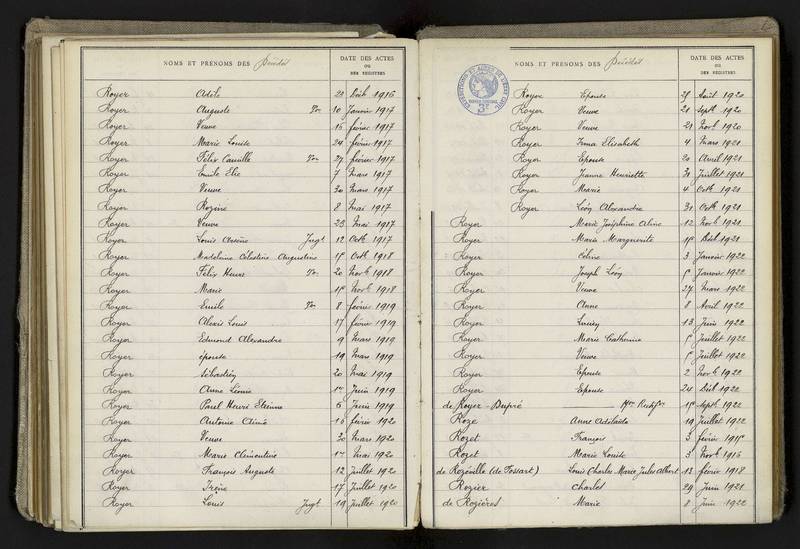 NOMS ET PRÉNOMS DES Décédés
DATE DES ACTES
OU
DES REGISTRES
Royer Adèle 21 Déb 1916
Royer Auguste 10 Janvier 1917
Royer Veuve 16 février 1917
Royer Marie Louise 24 février 1917
Royer Félix Camille 27 février 1917
Royer Emile Elie 7 Mars 1917
Royer Veuve 30 Mars 1917
Royer Rosine 8 Mai 1917
Royer Veuve 23 Mai 1917
Royer Louis Arsène Jugt 12 Octb 1917
Royer Madeleine Célestine Augustine 15 Octb 1918
Royer Félix Henri 20 Novb 1918
Royer Marie Novb 1918
Royer Emile 8 février 1919
Royer Alexis Louis 17 février 1919
Royer Edmond Alexandre 9 Mars 1919
Royer épouse 19 Mars 1919
Royer Sébastien 20 Mai 1919
Royer Anne Léonie Juin 1919
Royer Paul Henri Etienne 6 Juin 1919
Royer Antoine Aimé 16 février 1920
Royer Veuve 30 Mars 1920
Royer Marie Clémentine Mai 1920
Royer François Auguste 12 Juillet 1920
Royer Irène 17 Juillet 1920
Royer Louis Jugt 19 Juillet 1920
NOMS ET PRÉNOMS DES Décédés
DATE DES ACTES
OU
DES REGISTRES
3F
Royer Epouse 25 Août 1920
Royer Veuve 21 Septb 1920
Royer Veuve 21 Novb 1920
Royer Irma Elisabeth 4 Mars 1921
Royer Epouse 20 Avril 1921
Royer Jeanne Henriette 30 Juillet 1921
Royer Marie 4 Octb 1921
Royer Léon Alexandre 31 Octb 1921
Royer Marie Joséphine Aline 12 Novb 1921
Royer Marie Marguerite 15 Déb 1921
Royer Céline 3 Janvier 1922
Royer Joseph Léon 5 Janvier 1922
Royer Veuve 27 Mars 1922
Royer Anne 8 Avril 1922
Royer Lucien 13 Juin 1922
Royer Marie Catherine 5 Juillet 1922
Royer Veuve 5 Juillet 1922
Royer Epouse 2 Novb 1922
Royer Epouse 24 Déb 1922
de Royer-Dupré 15 Septb 1922
Roze Anne Adélaïde 19 Juillet 1922
Rozet François 3 février 1915
Rozet Marie Louise 3 Novb 1916
de Rozéville (de Fossart) Louis Charles Marie Jules Albert 13 février 1918
Rozier Charles 29 Juin 1921
de Rozières Marie 8 Juin 1922